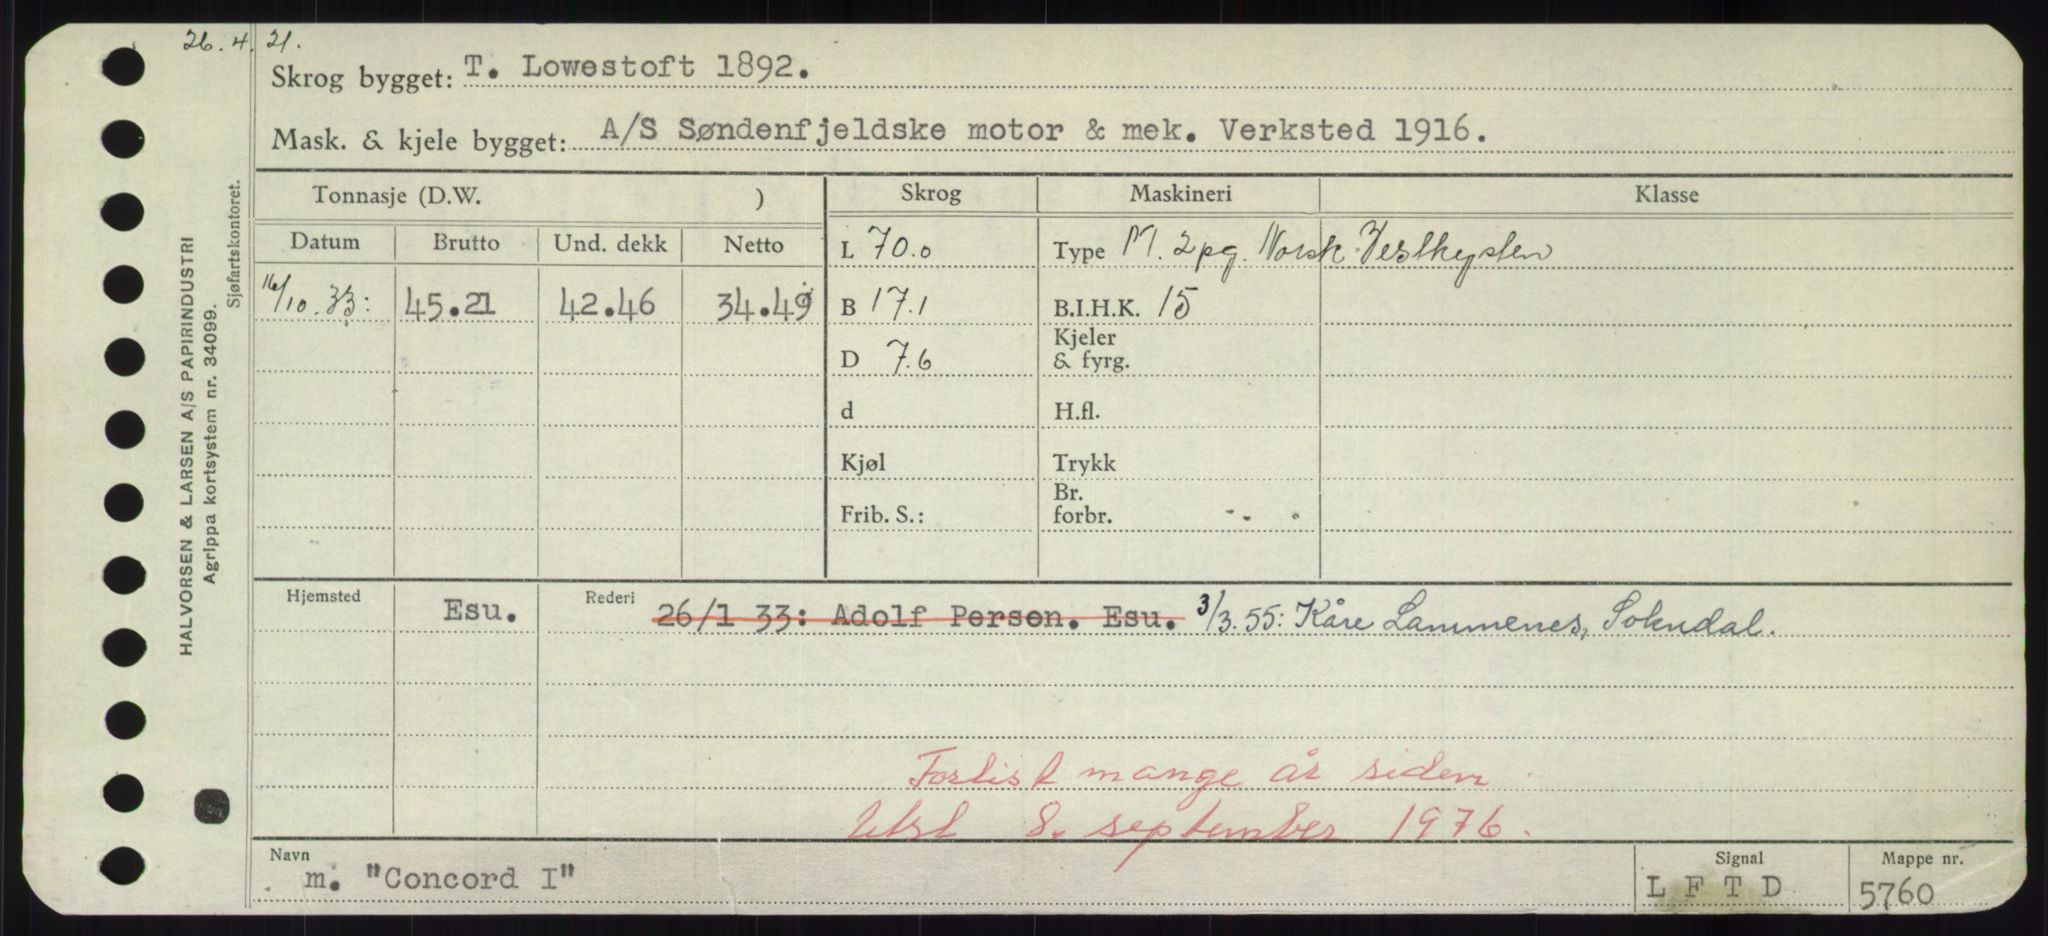 26.4.21.
Skrog bygget: T. Lowestoft 1892.
Mask. & kjele bygget: A/S Søndenfjeldske motor & mek. Verksted 1916.
Tonnasje (D.W. ) Skrog Maskineri Klasse
Datum Brutto Und. dekk Netto L 70.0 Type M. 2pg. Norsk Vestkysten
16/10.33: 45.21 42.46 34.49 B 17.1 B.I.H.K. 15
D 7.6 Kjeler & fyrg.
d H.fl.
Kjøl Trykk
Frib. S.: Br. forbr.
Hjemsted Esu. Rederi 26/1 33: Adolf Persen. Esu. 3/3.55: Kåre Lammenes, Sokndal.
Forlist mange år siden
8. september 1976.
Navn m. "Concord I" Signal L F T D Mappe nr. 5760
HALVORSEN & LARSEN A/S PAPIRINDUSTRI
Agrippa kortsystem nr. 34099.
Sjøfartskontoret.